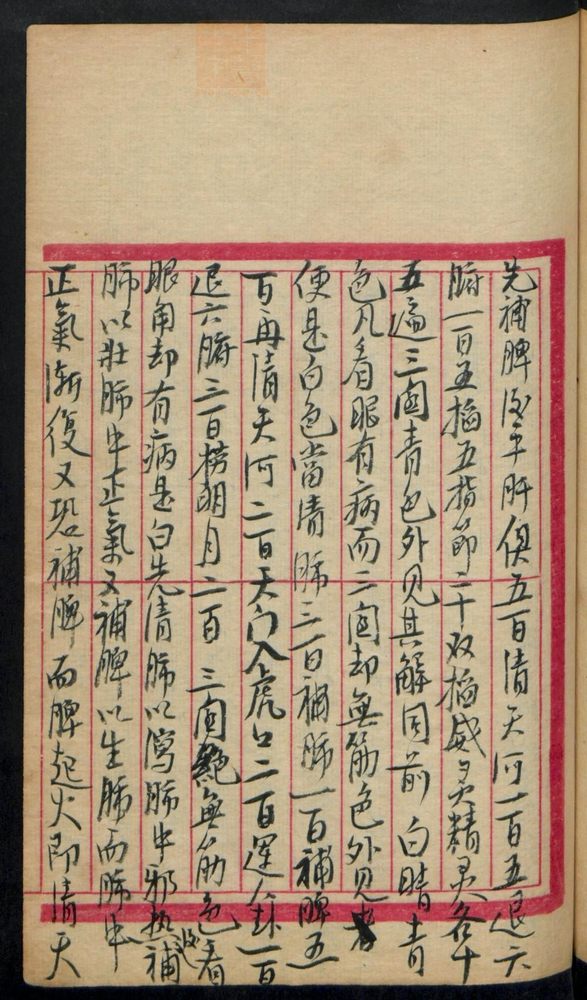 先補脾後平肝俱五百清天河一百五退六
腑一百五掐五指節二十次掐威灵精灵各十
五遍三関青色外見其解同前 白睛青
色凡看眼有病而三関却無筋色外見者
便是白色當清肺三百補肺一百補脾五
百再清天河二百天门入虎口二百運八卦一百
退六腑三百撈明月二百 三関絶無筋色看
眼角却有病是白先清肺以瀉肺中邪热後補
肺以壯肺中正氣又補脾以生肺而肺中
正氣漸復又恐補脾而脾起火即清天